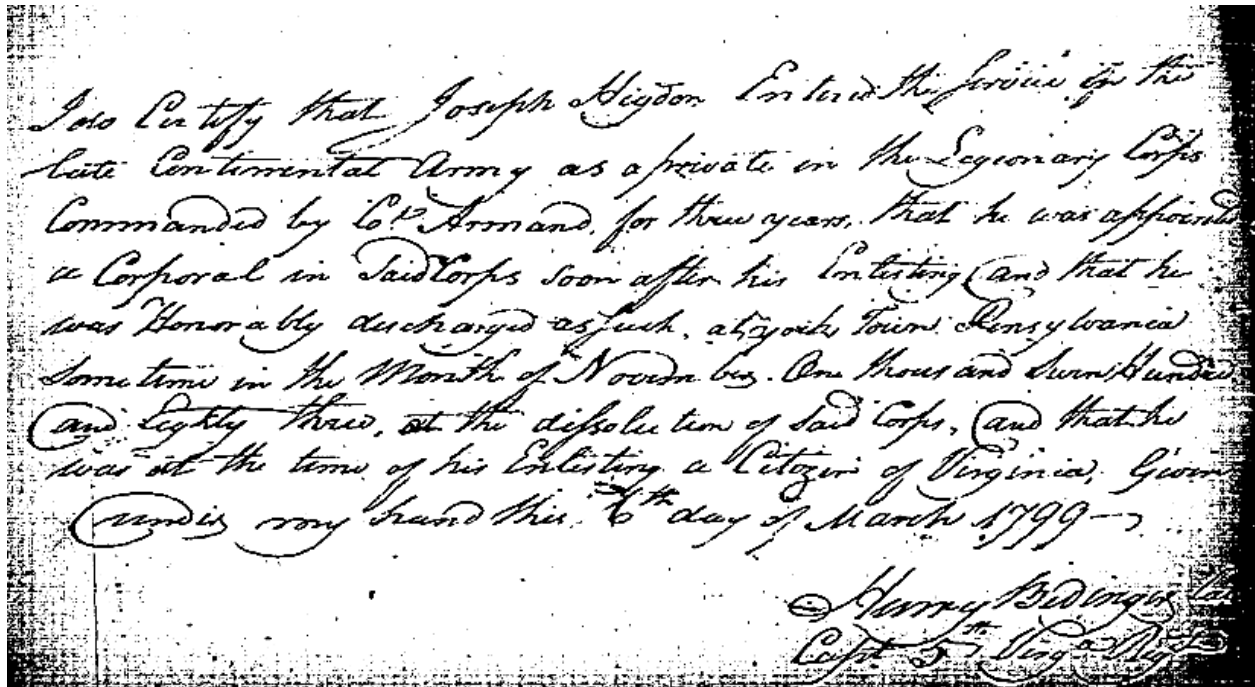 I do Certify that Joseph Higdon Entered the Service in the
late Continental Army as a private in the Legionary Corps
Commanded by Col. Armand, for three years, that he was appointed
a Corporal in Said Corps soon after his Enlisting and that he
was Honorably discharged as such, at york Town Pensylvania
some time in the Month of November. One thousand Seven Hundred
and Eighty three, at the dissolution of said Corps, and that he
was at the time of his Enlisting a Citizen of Virginia, Given
under my hand this 6th day of March 1799
Harry Bedinger late
Capt. 5th Virga Regt